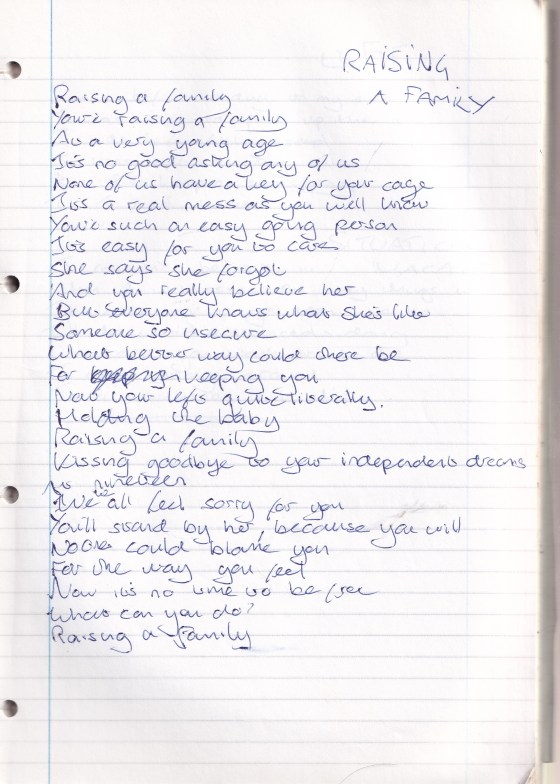 RAISING
A FAMILY
Raising a family
You're raising a family
At a very young age
It's no good asking any of us
None of us have a key for your cage
It's a real mess as you well know
You're such an easy going person
It's easy for you to care
She says she forgot
And you really believe her
But everyone knows what she's like
Someone so insecure
What better way could there be
For keeping you
Now your left quite literally.
Holding the baby
Raising a family
Kissing goodbye to your independent dreams
At nineteen
We all feel sorry for you
You'll stand by her, because you will
No one could blame you
For the way you feel
Now it's no time to be free
What can you do?
Raising a family